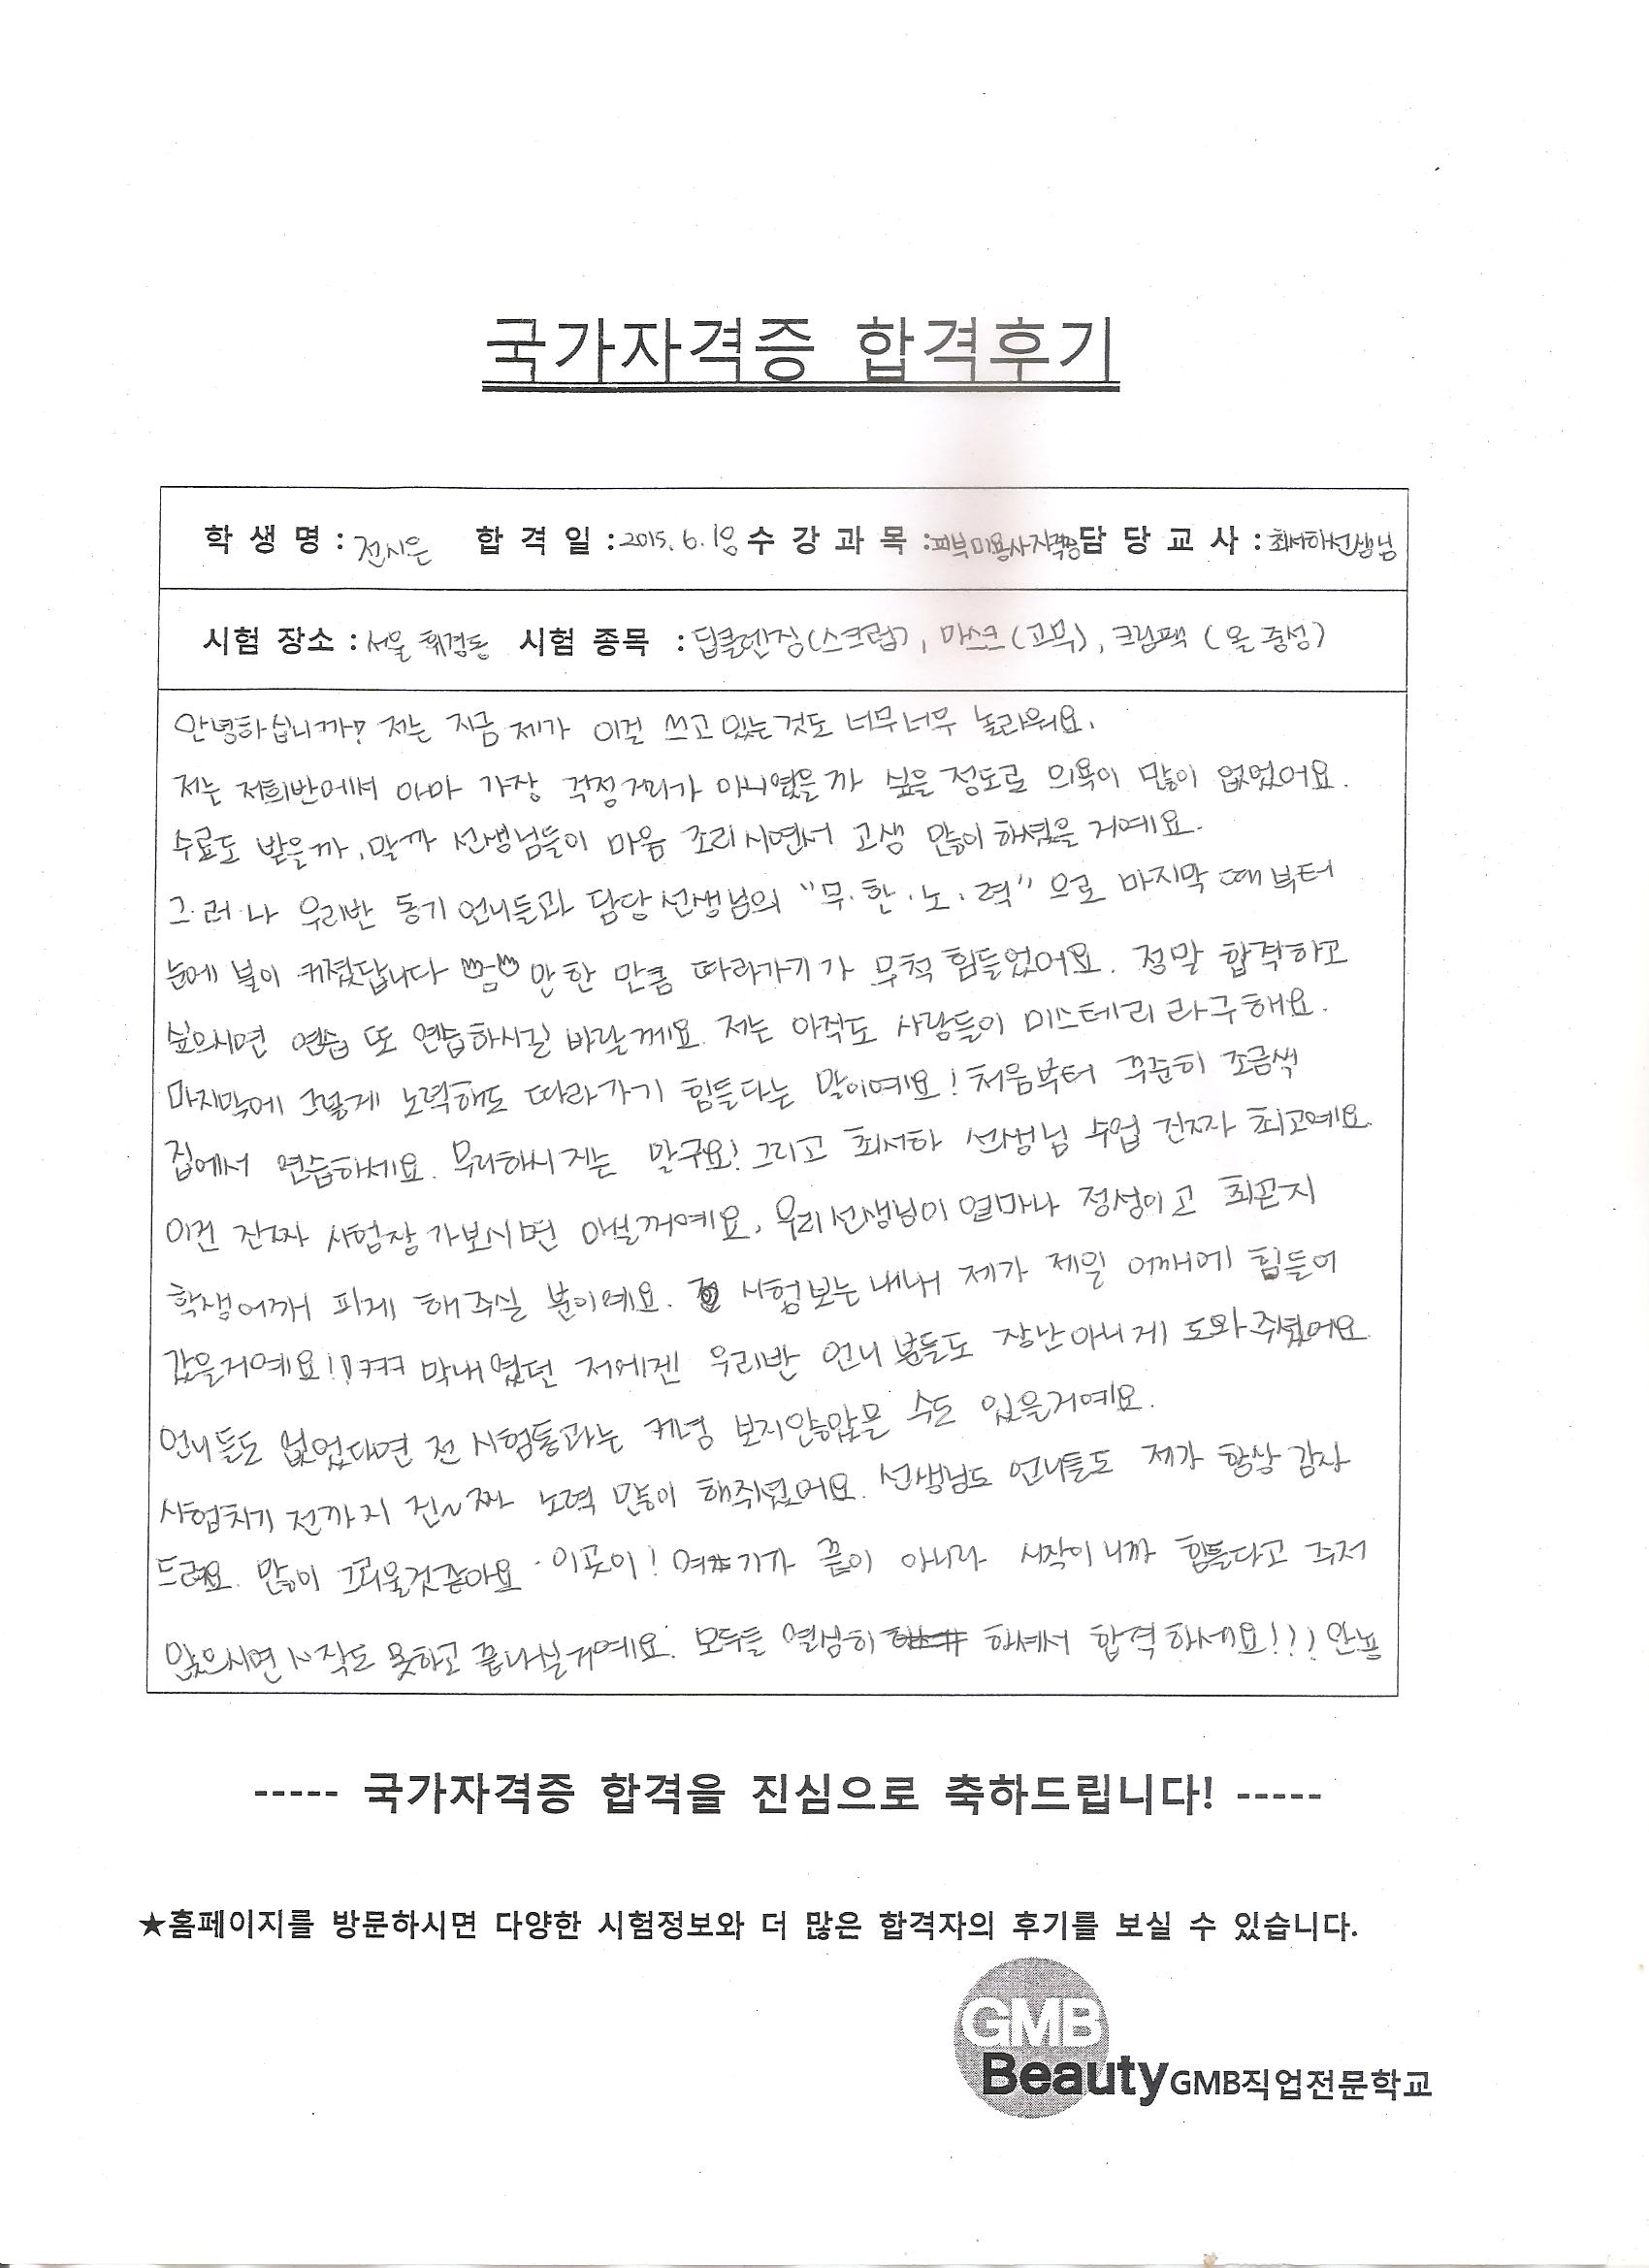 국가자격증 합격후기
학 생 명 : 전시은 합 격 일 : 2015. 6. 18 수 강 과 목 : 피부미용사자격증 담 당 교 사 : 최서하선생님
시험 장소 : 서울 휘경동 시험 종목 : 딥클렌징(스크럽), 마스크(고무), 크림팩 (올 중성)
안녕하십니까? 저는 지금 제가 이걸 쓰고 있는것도 너무너무 놀라워요.
저는 저희반에서 아마 가장 걱정거리가 아니였을까 싶을 정도로 의욕이 많이 없었어요.
수료도 받을까, 말까 선생님들이 마음 조리시면서 고생 많이 하셨을 거예요.
그·러·나 우리반 동기 언니들과 담당선생님의 "무·한·노·력"으로 마지막 때부터
눈에 불이 켜졌답니다 안한 만큼 따라가기가 무척 힘들었어요. 정말 합격하고
싶으시면 연습 또 연습하시길 바랄께요. 저는 아직도 사람들이 미스테리라구해요.
마지막에 그렇게 노력해도 따라가기 힘들다는 말이예요! 처음부터 꾸준히 조금색
집에서 연습하세요. 무리하시지는 말구요! 그리고 최서하 선생님 수업 진짜 최고예요.
이건 진짜 시험장 가보시면 아실꺼예요. 우리선생님이 얼마나 정성이고 최곤지
학생어깨 피게 해주실 분이예요. 시험보는 내내 제가 제일 어깨에 힘들어
갔을거예요!! ㅋㅋㅋ 막내였던 저에겐 우리반 언니들도 장난아니게 도와주셨어요.
언니들도 없었다면 전 시험통과는 커녕 보지않았을 수도 있을거예요.
시험치기 전까지 진~짜 노력 많이 해주셨어요. 선생님도 언니들도 제가 항상 감사
드려요. 많이 그리울것같아요. 이곳이! 여기가 끝이 아니라 시작이니까 힘들다고 주저
앉으시면 시작도 못하고 끝나실거예요. 모두들 열심히 하셔서 합격하세요!!! 안뇽
----- 국가자격증 합격을 진심으로 축하드립니다! -----
★홈페이지를 방문하시면 다양한 시험정보와 더 많은 합격자의 후기를 보실 수 있습니다.
GMB
Beauty GMB직업전문학교